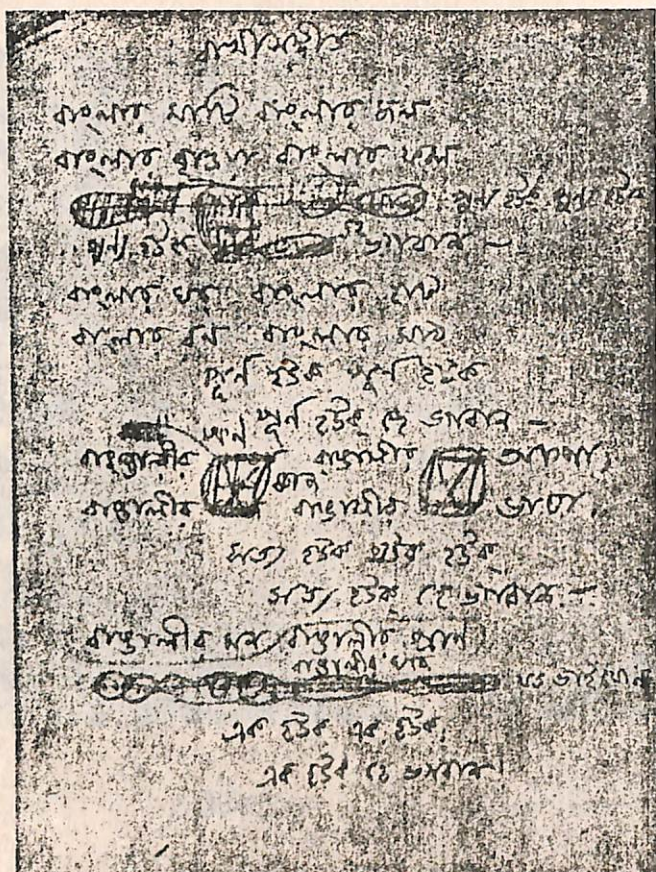 রাখীসঙ্গীত
বাংলার মাটি বাংলার জল
বাংলার বায়ু বাংলার ফল
পুণ্য হউক পুণ্য হউক
পুণ্য হউক হে ভগবান –
বাংলার ঘর বাংলার হাট
বাংলার বন বাংলার মাঠ
পূর্ণ হউক পূর্ণ হউক
পূর্ণ হউক হে ভগবান –
বাঙালীর পণ বাঙালীর আশা,
বাঙালীর কাজ বাঙালীর ভাষা,
সত্য হউক সত্য হউক
সত্য হউক হে ভগবান –
বাঙালীর মন বাঙালীর প্রাণ
বাঙালীর ঘরে যত ভাইবোন
এক হউক এক হউক
এক হউক হে ভগবান